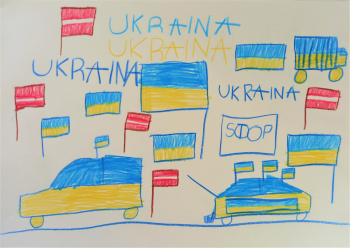 UKRAINA
UKRAINA
UKRAINA
UKRAINA
STOP